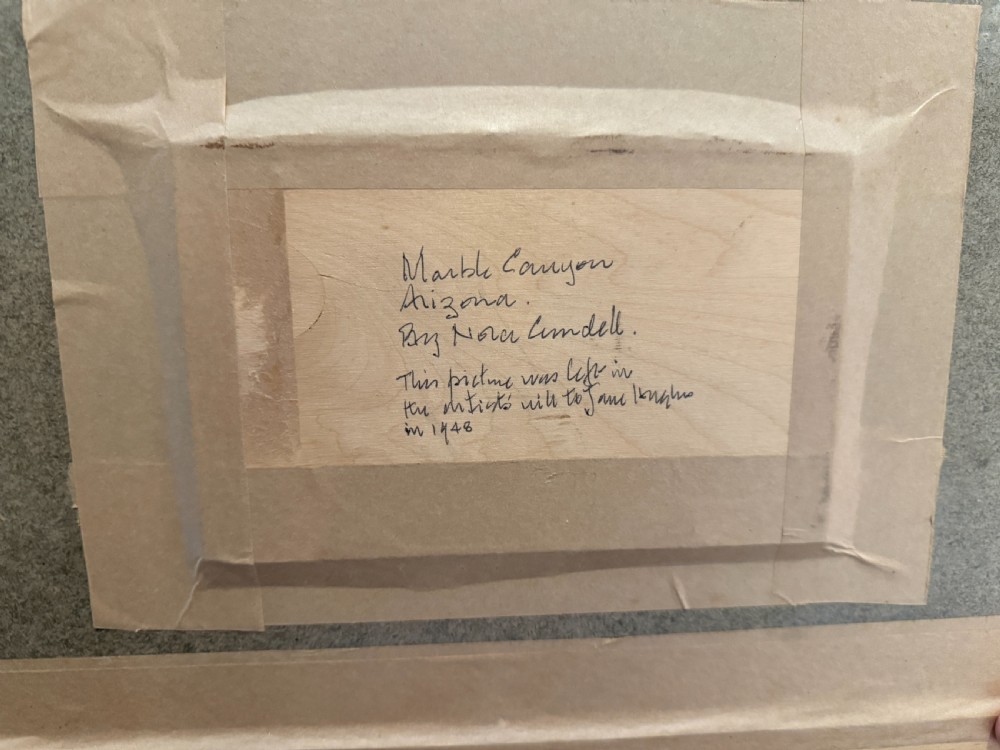 Marble Canyon
Arizona.
By Nora Cundell.
This picture was left in
the artists' will to Jane
in 1948